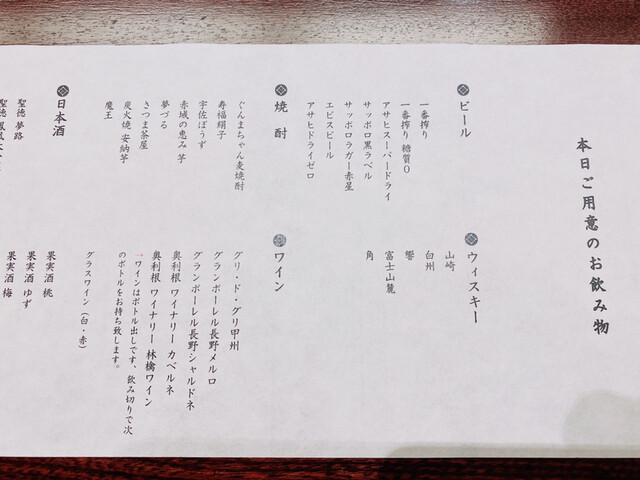 本日ご用意のお飲み物
ビール
一番搾り
一番搾り 糖質0
アサヒスーパードライ
サッポロ黒ラベル
サッポロラガー赤星
エビスビール
アサヒドライゼロ
ウィスキー
山崎
白州
響
富士山麓
角
焼酎
ぐんまちゃん麦焼酎
寿福絹子
宇佐ぼうず
赤城の恵み 芋
夢づる
さつま茶屋
炭火焼 安納芋
魔王
ワイン
グリ・ド・グリ甲州
グランポーレル長野メルロ
グランポーレル長野シャルドネ
奥利根 ワイナリー カベルネ
奥利根 ワイナリー 林檎ワイン
→ワインはボトル出しです、飲み切りで次
のボトルをお持ち致します。
グラスワイン(白・赤)
日本酒
聖徳 夢路
聖徳 鳳凰
果実酒 桃
果実酒 ゆず
果実酒 梅